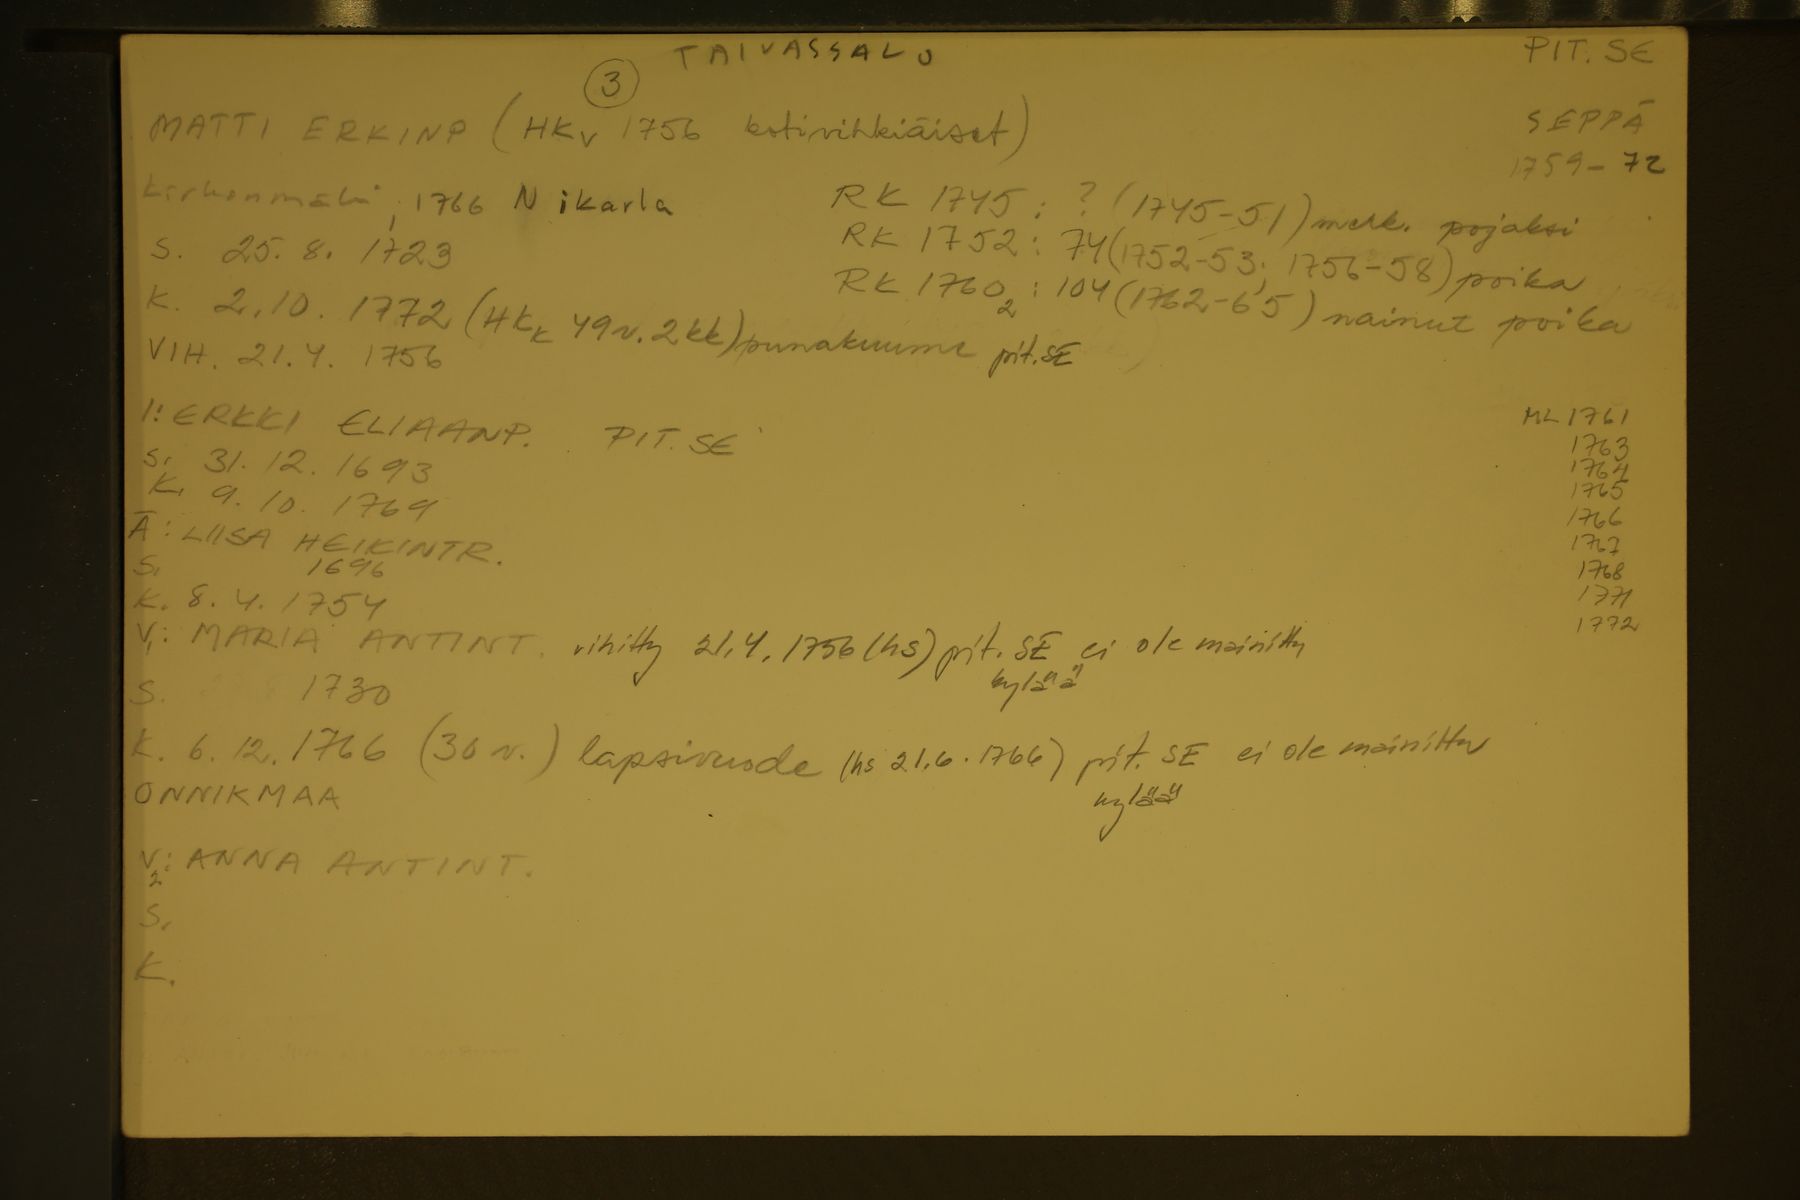 TAIVASSALO
PIT. SE
3
MATTI ERKINP (HKv 1756 kotivihkiäiset)
SEPPÄ
1759-72
Kirkonmäki; 1766 Nikarla
RK 1745: ? (1745-51) merk. pojaksi
S. 25.8.1723
RK 1752: 74 (1752-53; 1756-58) poika
RK 1760₂: 104 (1762-65) nainut poika
K. 2.10.1772 (HKk 49 v. 2 kk) punakuume pit. SE
VIH. 21.4.1756
I: ERKKI ELIAANP. PIT. SE
S. 31.12.1693
K. 9.10.1769
Ä: LIISA HEIKINTR.
S. 1696
K. 8.4.1754
V₁: MARIA ANTINT. vihitty 21.4.1756 (hs) pit. SE ei ole mainittu
kylää
S. 1730
K. 6.12.1766 (36 v.) lapsivuode (hs 21.6.1766) pit. SE ei ole mainittu
kylää
ONNIKMAA
V₂: ANNA ANTINT.
S.
K.
ML 1761
1763
1764
1765
1766
1767
1768
1771
1772